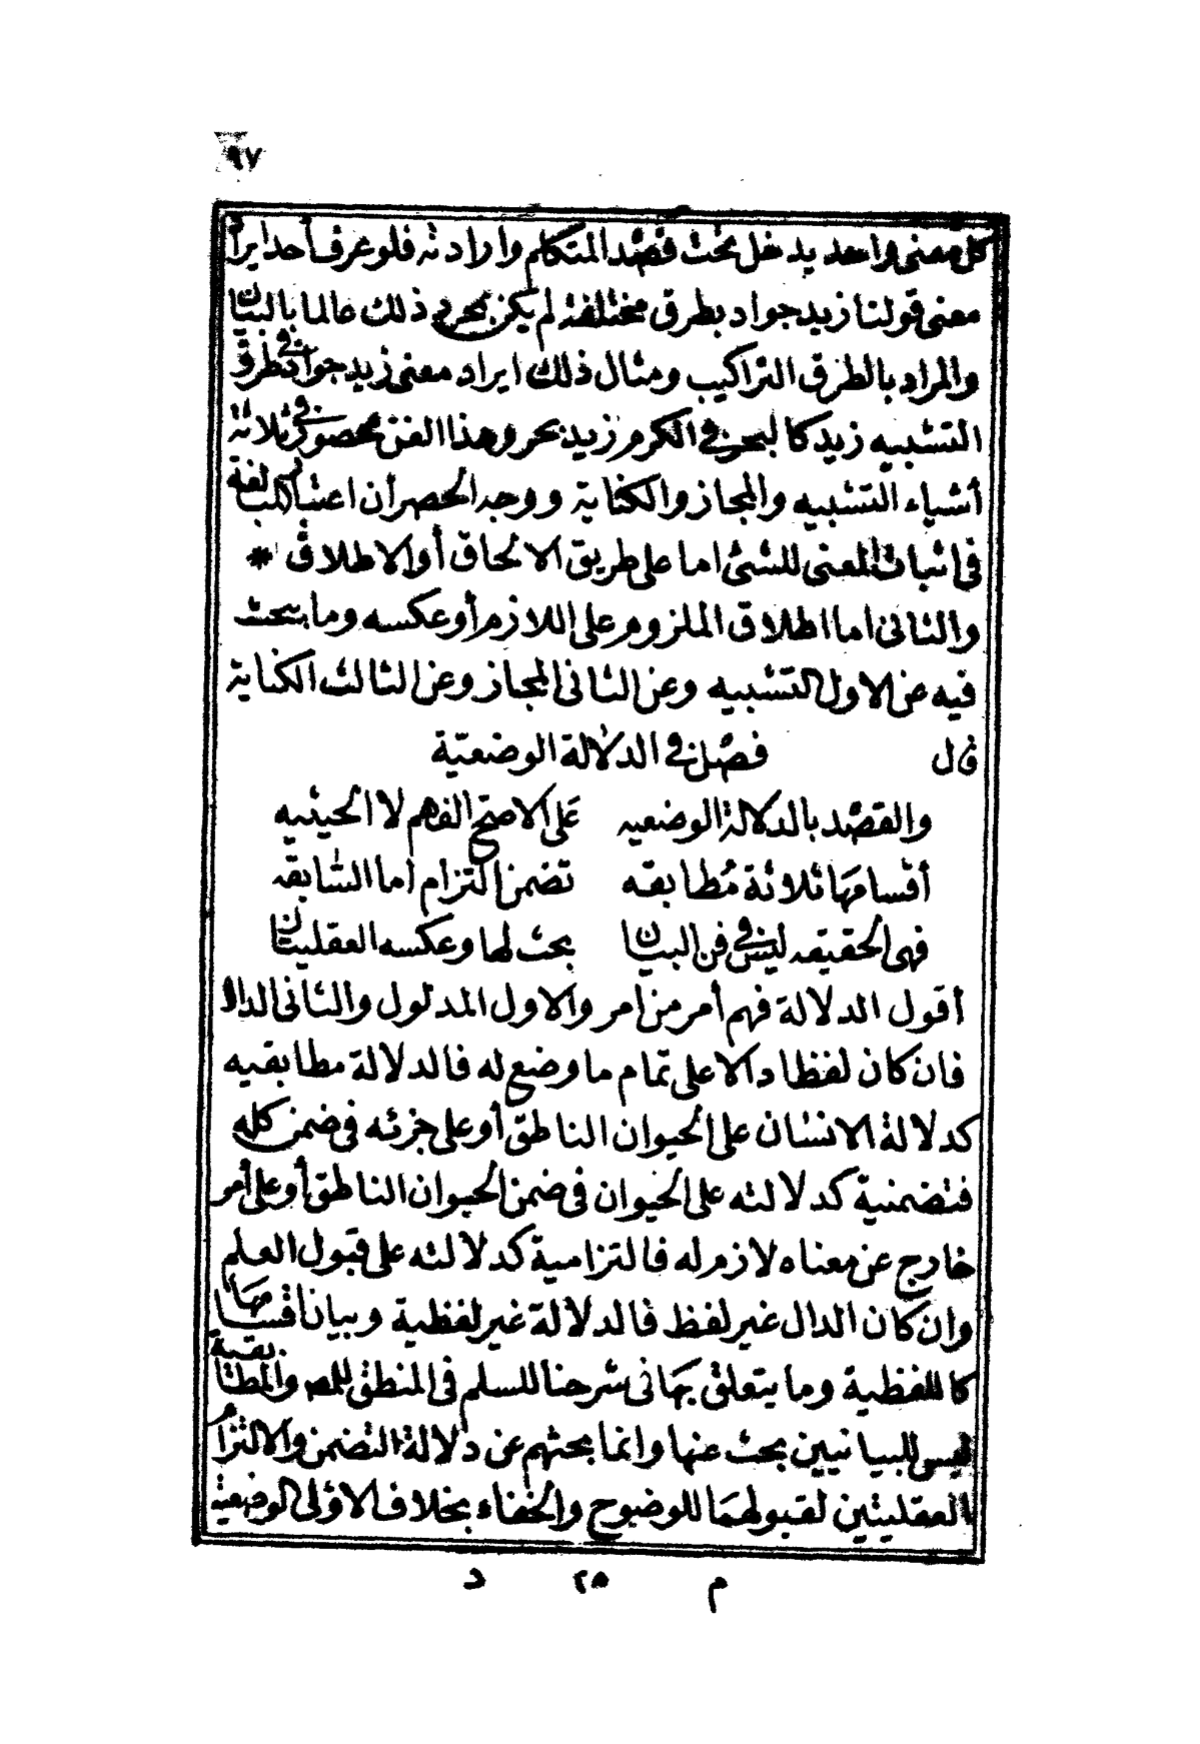 ٩٧
كل معنى واحد يدخل تحت قصد المتكلم وارادته فلو عرف أحد ايراد
معنى قولنا زيد جواد بطرق مختلفة لم يكن بمجرد ذلك عالما بالبيان
والمراد بالطرق التراكيب ومثال ذلك ايراد معنى زيد جواد في طرق
التشبيه زيد كالبحر في الكرم زيد بحر وهذا الفن محصور في ثلاثة
أشياء التشبيه والمجاز والكناية ووجه الحصر أن اعتبار المبالغة
في اثبات المعنى للشئ اما على طريق الالحاق أو الاطلاق *
والثاني اما اطلاق الملزوم على اللازم أو عكسه وما يبحث
فيه عن الاول التشبيه وعن الثاني المجاز وعن الثالث الكناية
قال فصل في الدلالة الوضعية
والقصد بالدلالة الوضعيه على الاصح الفهم لا الحيثيه
أقسامها ثلاثة مطابقه تضمن التزام أما السابقه
فهى الحقيقه ليس في فن البيان بحث لها وعكسه العقليتان
أقول الدلالة فهم أمر من أمر والاول المدلول والثاني الدال
فان كان لفظا دالا على تمام ما وضع له فالدلالة مطابقيه
كدلالة الانسان على الحيوان الناطق أو على جزئه في ضمن كله
فتضمنية كدلالته على الحيوان في ضمن الحيوان الناطق أو على أمر
خارج عن معناه لازم له فالتزامية كدلالته على قبول العلم
وان كان الدال غير لفظ فالدلالة غير لفظية وبيان أقسامها
كاللفظية وما يتعلق بها في شرحنا للسلم في المنطق للمص والمطابقية
ليس للبيانيين بحث عنها وانما بحثهم عن دلالة التضمن والالتزام
العقليتين لقبولهما للوضوح والخفاء بخلاف الاولى الوضعية
م ٢٥ د